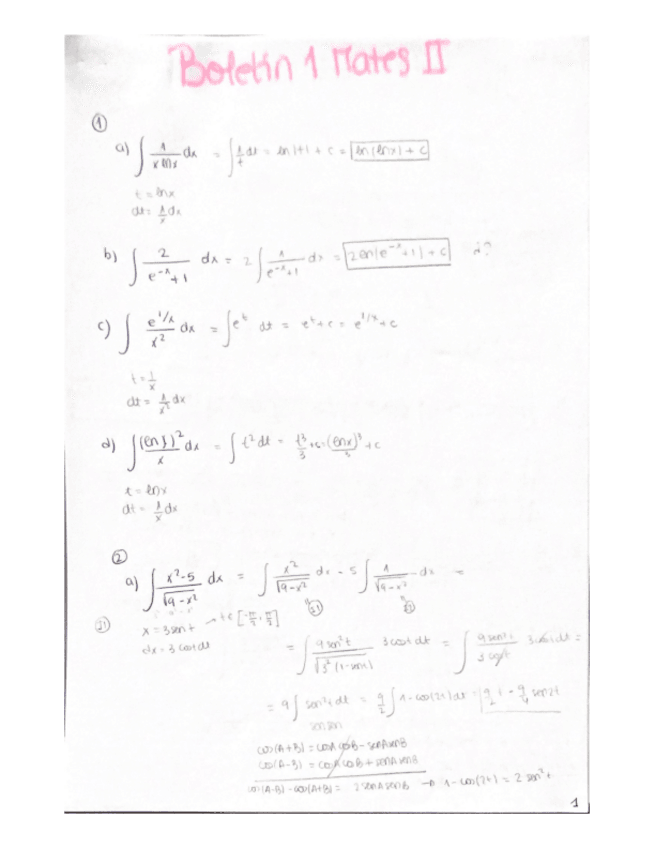 Boletín 1 Mates II
①
a) ∫ 1/(x lnx) dx = ∫ 1/t dt = ln|t| + c = ln|lnx| + c
t = lnx
dt = 1/x dx
b) ∫ 2/(e^-x + 1) dx = 2 ∫ 1/(e^-x + 1) dx = 2 ln|e^-x + 1| + c ¿?
c) ∫ e^1/x / x² dx = ∫ e^t dt = e^t + c = e^1/x + c
t = 1/x
dt = 1/x² dx
d) ∫ (ln x)² / x dx = ∫ t² dt = t³/3 + c = (lnx)³/3 + c
t = lnx
dt = 1/x dx
②
a) ∫ (x²-5)/√(9-x²) dx = ∫ x²/√(9-x²) dx - 5 ∫ 1/√(9-x²) dx =
x = 3 sen t → t ∈ [-π/2, π/2]
dx = 3 cos t dt
= ∫ 9 sen²t / √(3²(1-sen t)) 3 cos t dt = ∫ 9 sen²t / 3 cos t 3 cos t dt =
= 9 ∫ sen²t dt = 9/2 ∫ 1 - cos(2t) dt = 9/2 t - 9/4 sen 2t
sen sen
cos(A+B) = cosA cosB - senA senB
cos(A-B) = cosA cosB + senA senB
cos(A-B) - cos(A+B) = 2 senA senB → 1 - cos(2t) = 2 sen² t
1